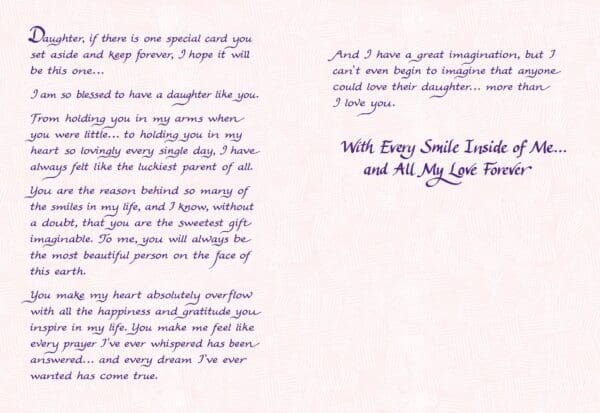 Daughter, if there is one special card you
set aside and keep forever, I hope it will
be this one...
I am so blessed to have a daughter like you.
From holding you in my arms when
you were little... to holding you in my
heart so lovingly every single day, I have
always felt like the luckiest parent of all.
You are the reason behind so many of
the smiles in my life, and I know, without
a doubt, that you are the sweetest gift
imaginable. To me, you will always be
the most beautiful person on the face of
this earth.
You make my heart absolutely overflow
with all the happiness and gratitude you
inspire in my life. You make me feel like
every prayer I've ever whispered has been
answered... and every dream I've ever
wanted has come true.
And I have a great imagination, but I
can't even begin to imagine that anyone
could love their daughter... more than
I love you.
With Every Smile Inside of Me...
and All My Love Forever